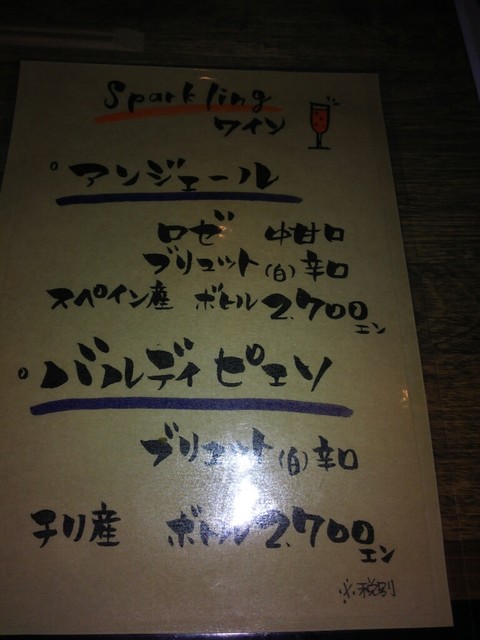 Sparkling
ワイン
アンジェール
ロゼ 中甘口
ブリュット(白)辛口
スペイン産 ボトル 2,700エン
バルディビエソ
ブリュット(白)辛口
チリ産 ボトル 2,700エン
※税別